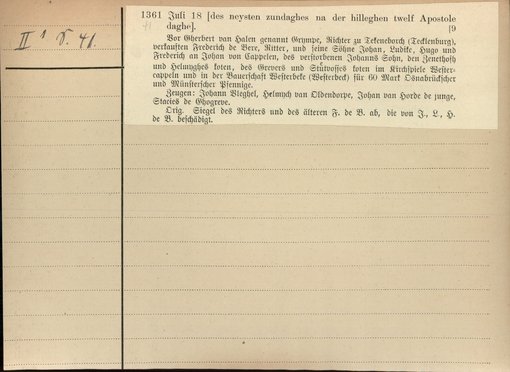 II 1 V. 41.
1361 Juli 18 [des neysten zundaghes na der hilleghen twelf Apostole
daghe]. [9
Vor Gherbert van Halen genannt Grympe, Richter zu Tekeneborch (Tecklenburg),
verkauften Frederich de Bere, Ritter, und seine Söhne Johan, Ludike, Hugo und
Frederich an Johan von Cappelen, des verstorbenen Johanns Sohn, den Zenethosh
und Helmyghes koten, des Grevers und Stutvosses koten im Kirchspiele Wester-
cappeln und in der Bauerschaft Westerbeke (Westerbeck) für 60 Mark Osnabrückscher
und Münsterscher Pfennige.
Zeugen: Johann Vleghel, Helmych van Oldendorpe, Johan van Horde de junge,
Stacies de Ghogreve.
Orig. Siegel des Richters und des älteren F. de B. ab, die von J., L, H.
de B. beschädigt.